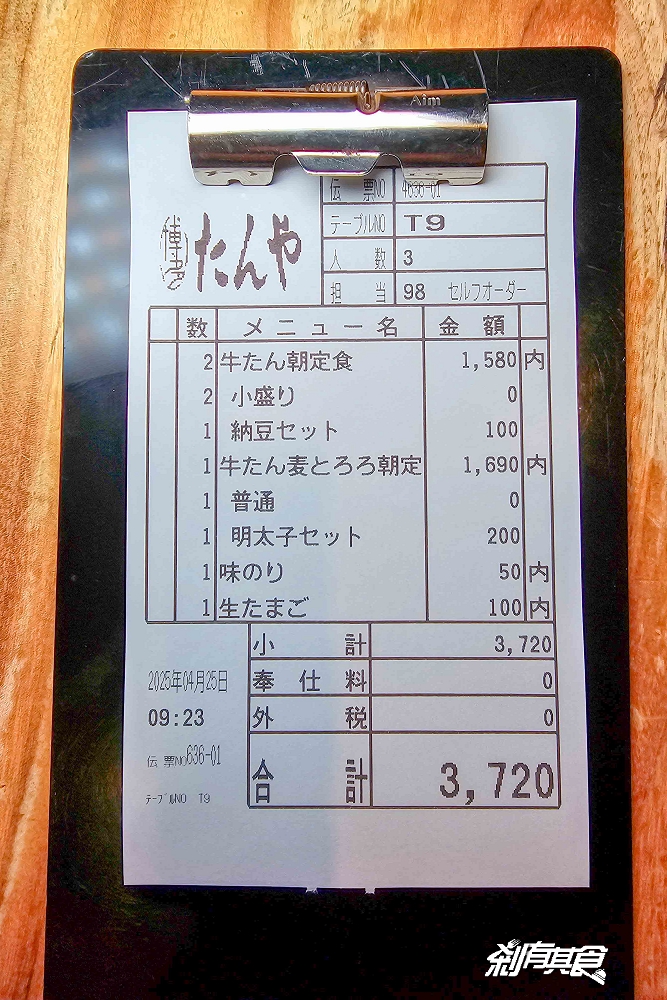 Aim
伝 票NO 4636-01
博多 たんや
テーブルNO T9
人 数 3
担 当 98 セルフオーダー
数 メニュー名 金 額
2 牛たん朝定食 1,580 内
2 小盛り 0
1 納豆セット 100
1 牛たん麦とろろ朝定 1,690 内
1 普通 0
1 明太子セット 200
1 味のり 50 内
1 生たまご 100 内
小 計 3,720
2025年04月25日 奉 仕 料 0
09:23 外 税 0
伝 票NO636-01
合 計 3,720
テーブルNO T9
剎有其食